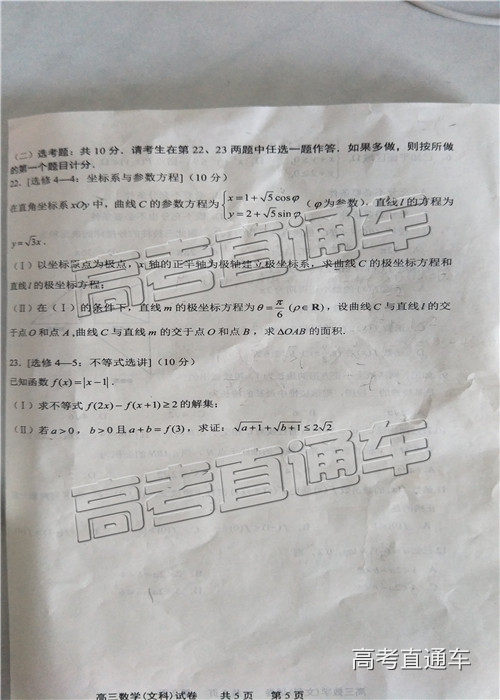 （二）选考题：共10分．请考生在第22、23两题中任选一题作答．如果多做，则按所做
的第一个题目计分．
22. [选修4—4：坐标系与参数方程]（10分）
在直角坐标系xOy中，曲线C的参数方程为{x=1+√5cosφ y=2+√5sinφ（φ为参数）．直线l的方程为
y=√3x．
（Ⅰ）以坐标原点为极点，x轴的正半轴为极轴建立极坐标系，求曲线C的极坐标方程和
直线l的极坐标方程；
（Ⅱ）在（Ⅰ）的条件下，直线m的极坐标方程为θ=π/6（ρ∈R），设曲线C与直线l的交
于点O和点A,曲线C与直线m的交于点O和点B，求ΔOAB的面积．
23. [选修4—5：不等式选讲]（10分）
已知函数f(x)=|x−1|．
（Ⅰ）求不等式f(2x)−f(x+1)≥2的解集；
（Ⅱ）若a>0，b>0且a+b=f(3)，求证：√a+1+√b+1≤2√2
高三数学(文科)试卷 共5页 第5页
高考直通车
高考直通车
高考直通车